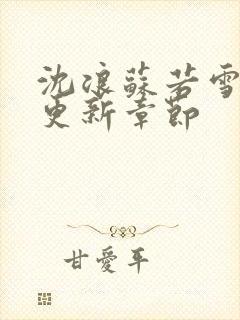 沈浪蘇若雪
更新章節
甘愛平